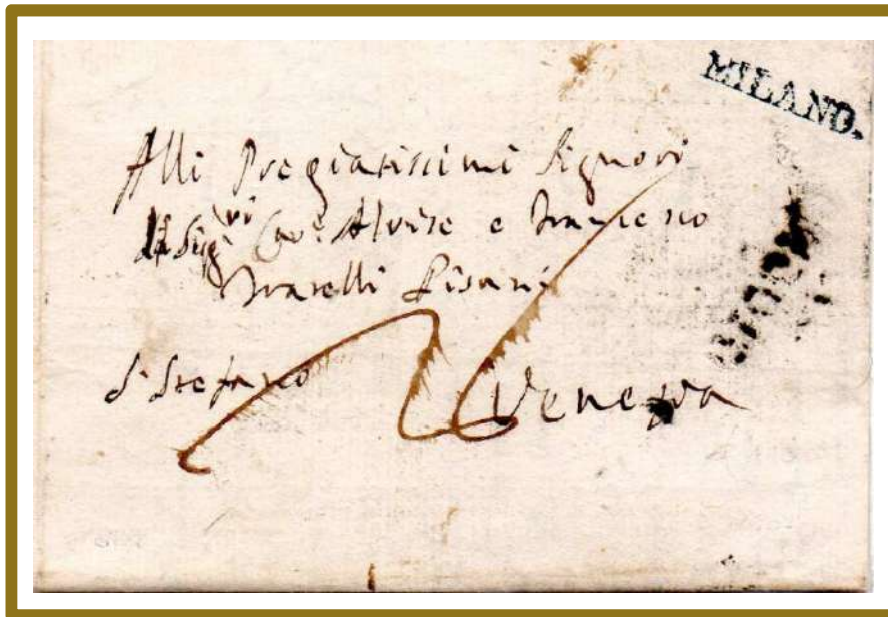 MILANO.
Alli Pregiatissimi Signori
Sigri Cave. Alvise e Francesco
Fratelli Pisani
S. Stefano
Venezia